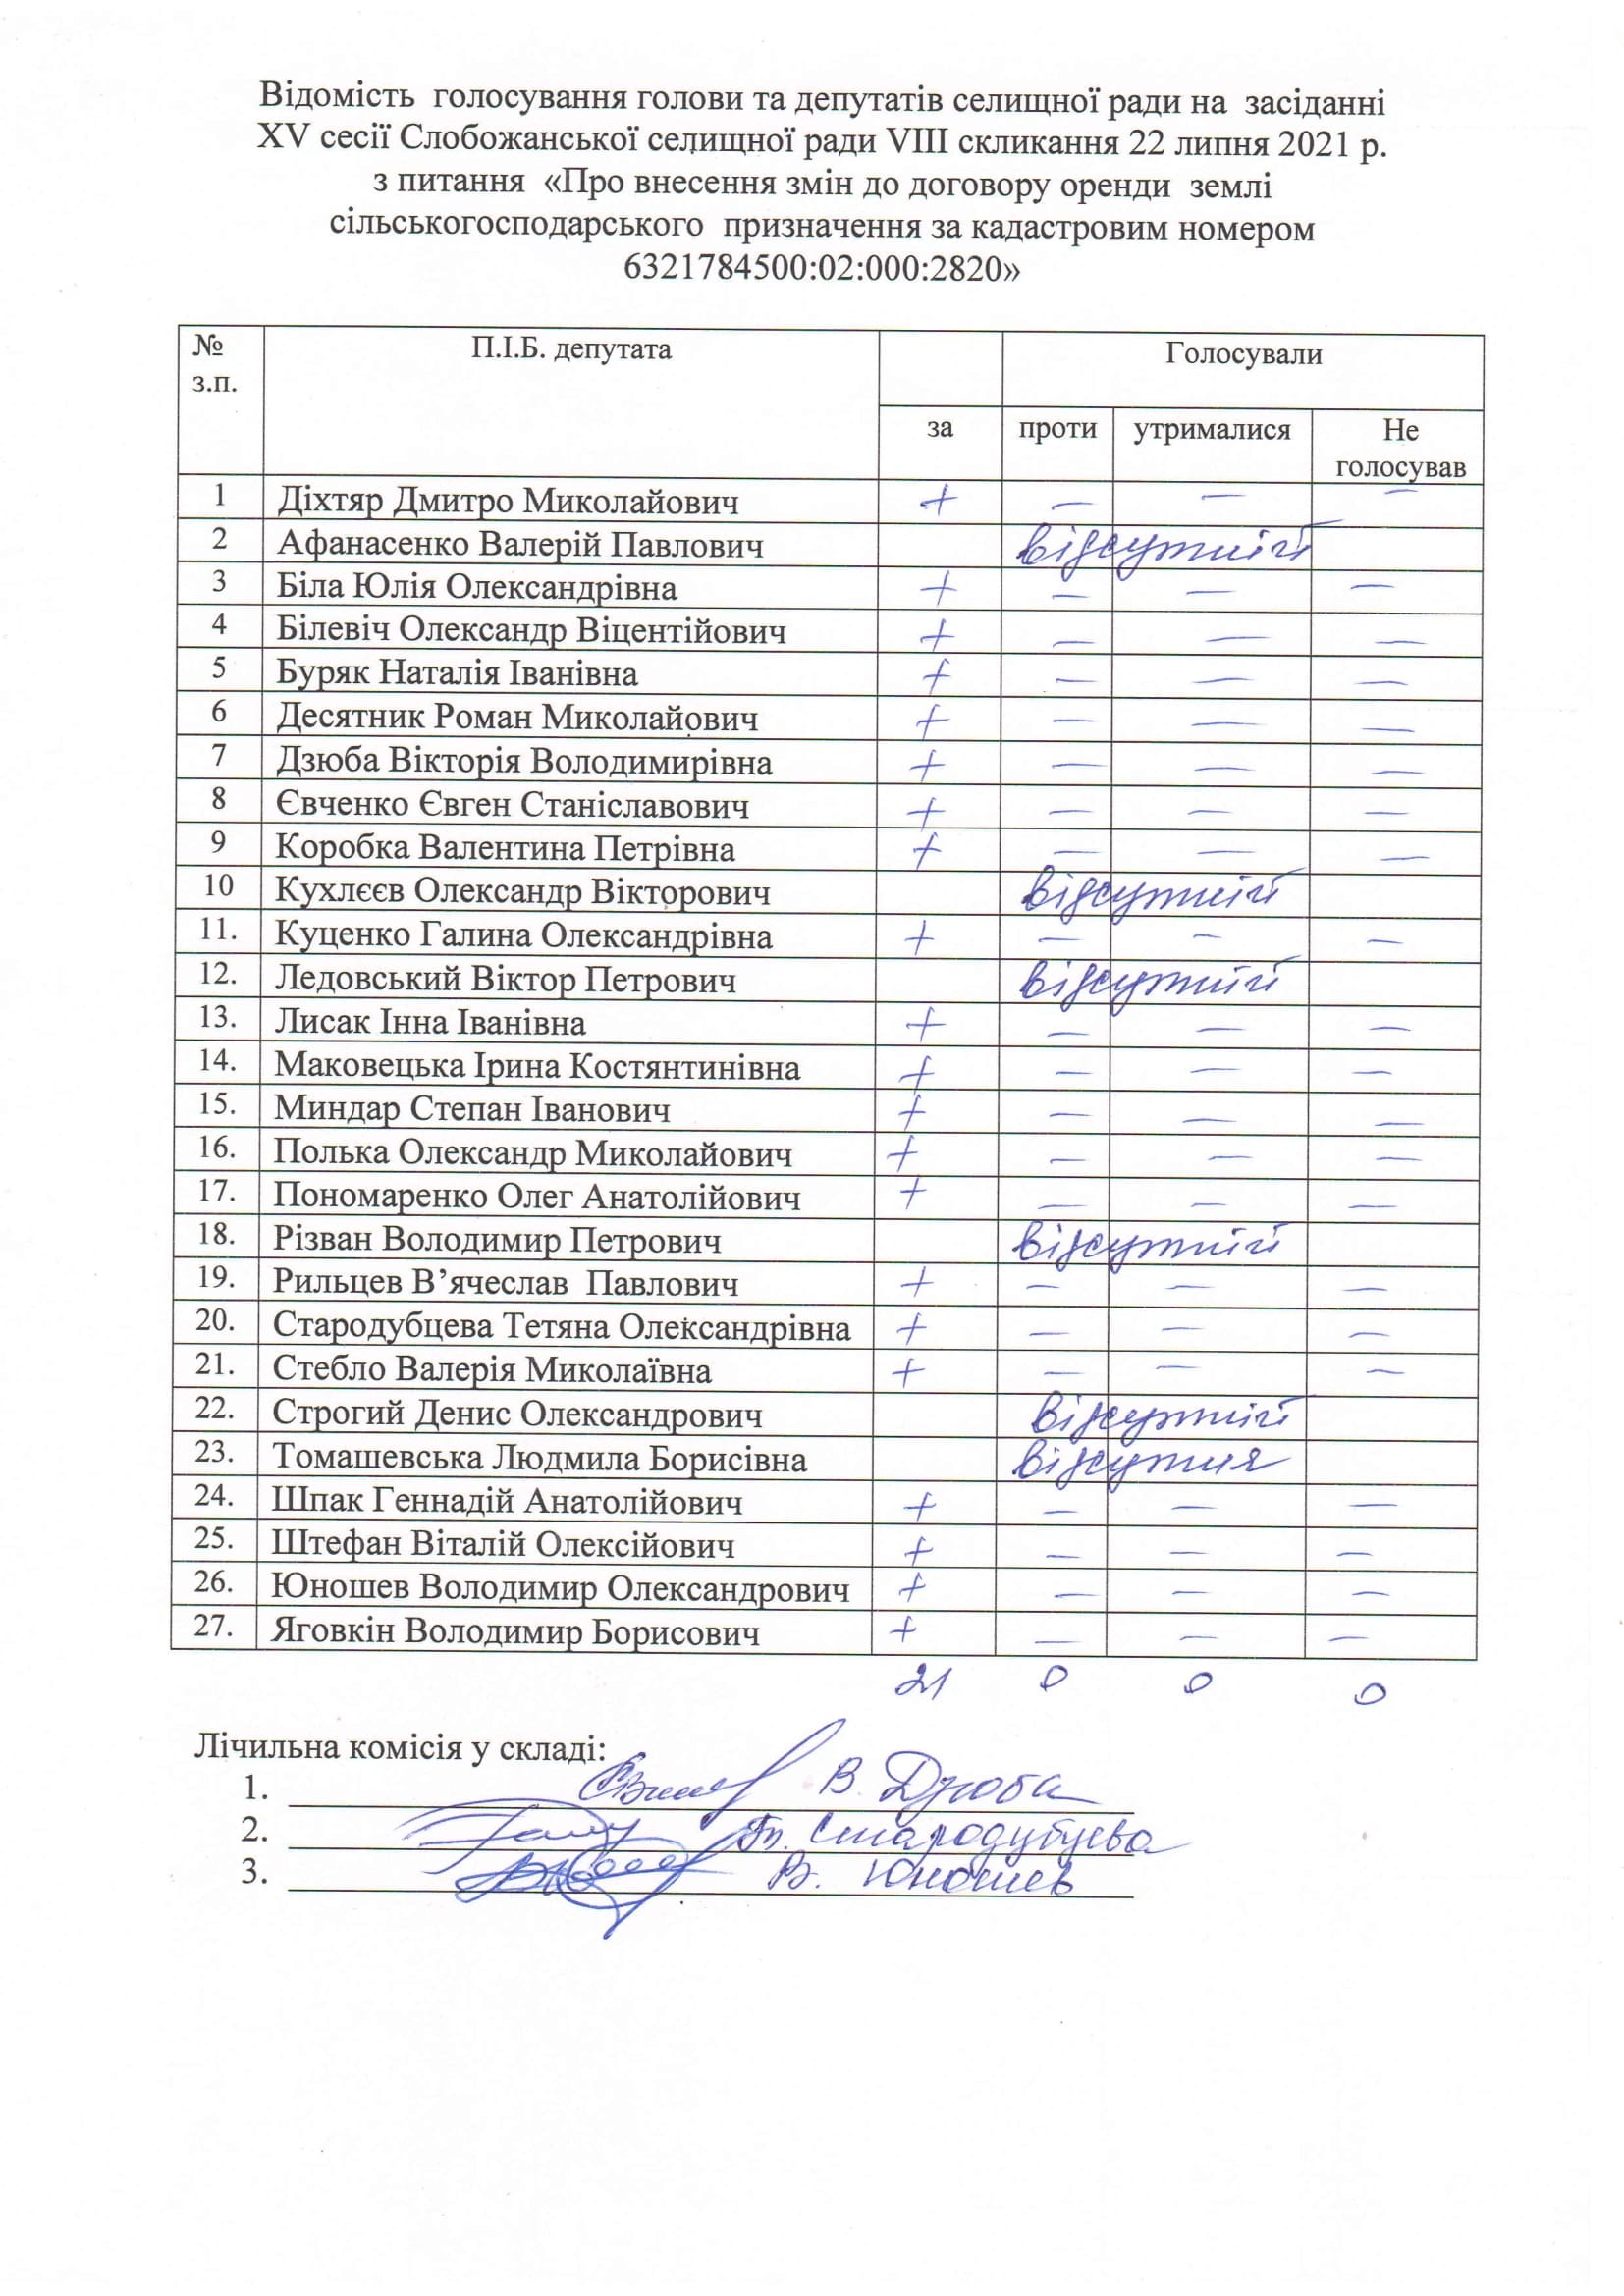 Відомість голосування голови та депутатів селищної ради на засіданні
XV сесії Слобожанської селищної ради VIII скликання 22 липня 2021 р.
з питання «Про внесення змін до договору оренди землі
сільськогосподарського призначення за кадастровим номером
6321784500:02:000:2820»
№ з.п. П.І.Б. депутата Голосували
за проти утрималися Не голосував
1 Діхтяр Дмитро Миколайович + — — —
2 Афанасенко Валерій Павлович відсутній
3 Біла Юлія Олександрівна + — — —
4 Білевіч Олександр Віцентійович + — — —
5 Буряк Наталія Іванівна + — — —
6 Десятник Роман Миколайович + — — —
7 Дзюба Вікторія Володимирівна + — — —
8 Євченко Євген Станіславович + — — —
9 Коробка Валентина Петрівна + — — —
10 Кухлєєв Олександр Вікторович відсутній
11. Куценко Галина Олександрівна + — — —
12. Ледовський Віктор Петрович відсутній
13. Лисак Інна Іванівна + — — —
14. Маковецька Ірина Костянтинівна + — — —
15. Миндар Степан Іванович + — — —
16. Полька Олександр Миколайович + — — —
17. Пономаренко Олег Анатолійович + — — —
18. Різван Володимир Петрович відсутній
19. Рильцев В’ячеслав Павлович + — — —
20. Стародубцева Тетяна Олександрівна + — — —
21. Стебло Валерія Миколаївна + — — —
22. Строгий Денис Олександрович відсутній
23. Томашевська Людмила Борисівна відсутня
24. Шпак Геннадій Анатолійович + — — —
25. Штефан Віталій Олексійович + — — —
26. Юношев Володимир Олександрович + — — —
27. Яговкін Володимир Борисович + — — —
21 0 0 0
Лічильна комісія у складі:
1. В. Дзюба
2. Т. Стародубцева
3. В. Юношев